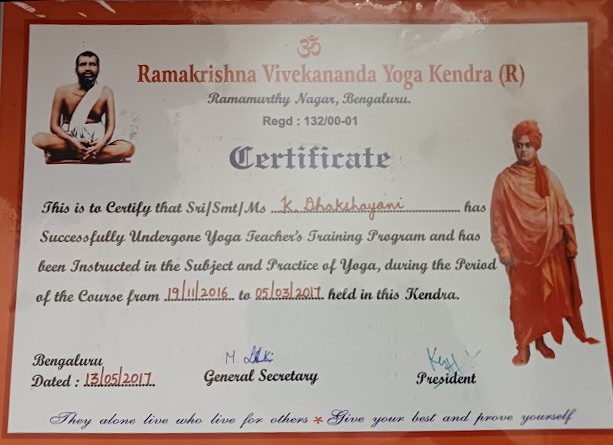 ॐ
Ramakrishna Vivekananda Yoga Kendra (R)
Ramamurthy Nagar, Bengaluru.
Regd : 132/00-01
Certificate
This is to Certify that Sri/Smt/Ms K. Dhakshayani has
Successfully Undergone Yoga Teacher's Training Program and has
been Instructed in the Subject and Practice of Yoga, during the Period
of the Course from 19/11/2016 to 05/03/2017 held in this Kendra.
Bengaluru
Dated : 13/05/2017
General Secretary
President
They alone live who live for others * Give your best and prove yourself